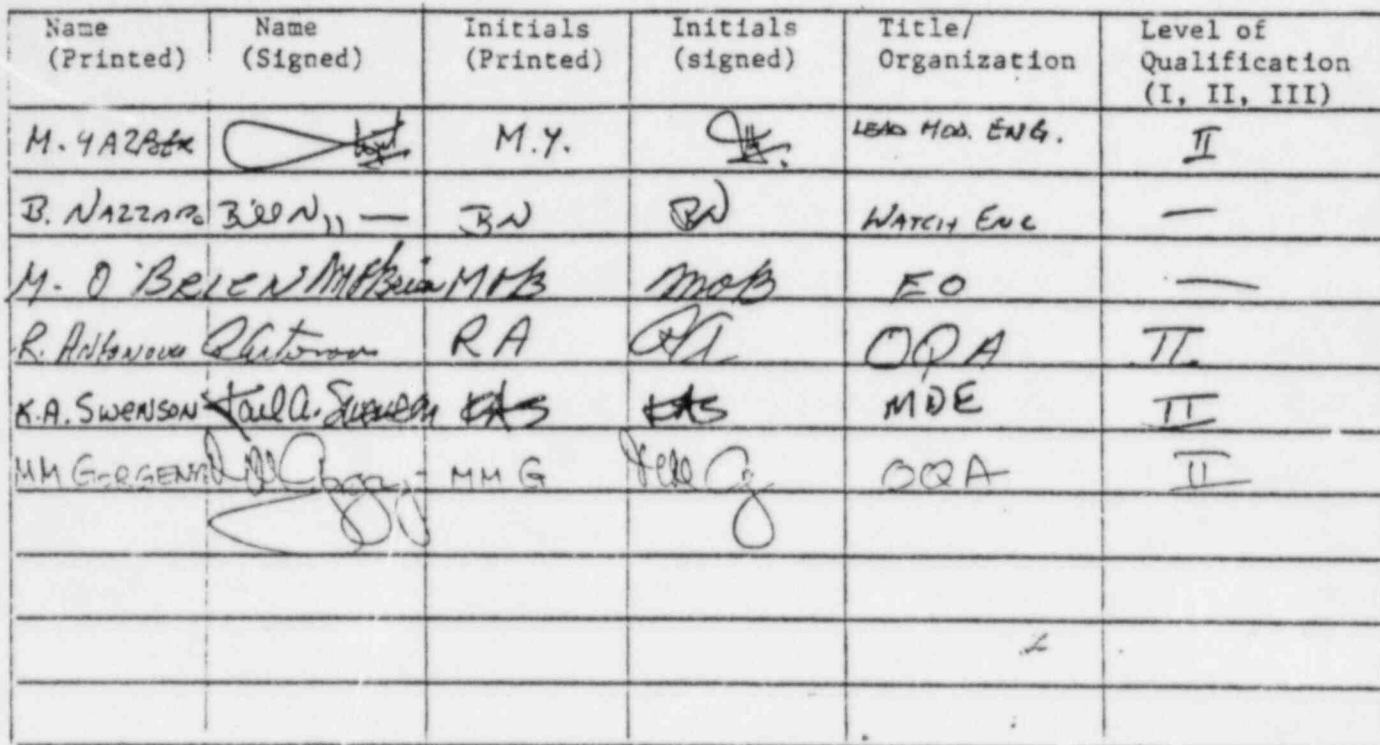 Name (Printed) Name (Signed) Initials (Printed) Initials (signed) Title/ Organization Level of Qualification (I, II, III)
M. M.Y. LEAD MOD. ENG. II
B. NAZZARO Bill N BN BN WATCH ENG —
M. O'BRIEN M O'Brien MOB MOB EO —
R. RA RA OQA II
K.A. SWENSON Karl A. Swenson KAS KAS MDE II
MM MMG OQA II